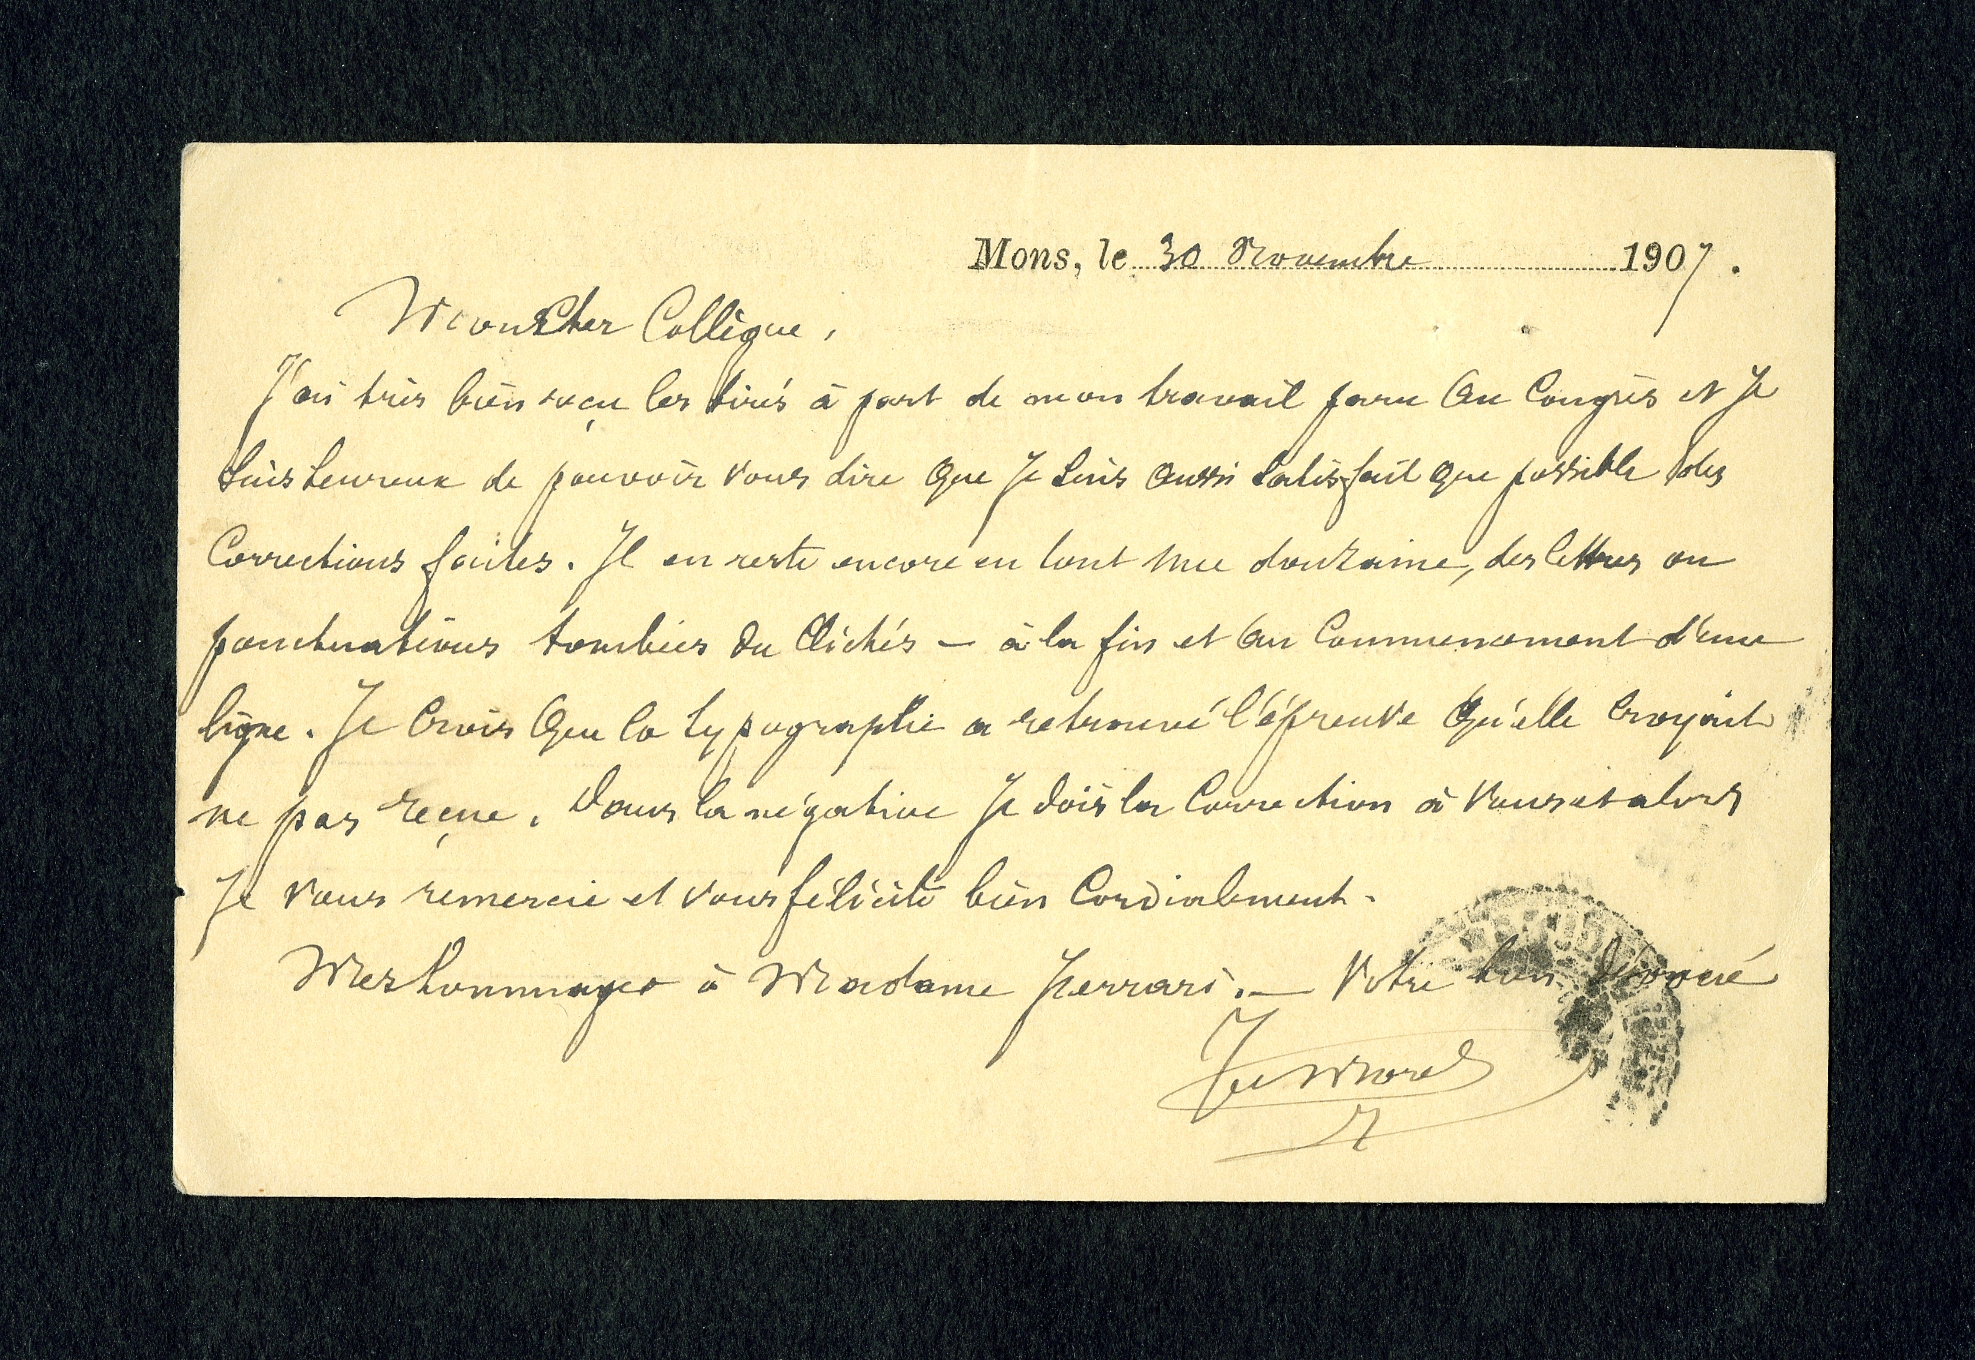 Mons, le 30 Novembre 1907.
Mon Cher Collègue,
J'ai très bien reçu les tirés à part de mon travail paru au Congrès et je
suis heureux de pouvoir vous dire que je suis aussi satisfait que possible des
Corrections faites. Il en reste encore en tout une douzaine, des lettres ou
ponctuations tombées du Clichés - à la fin et au Commencement d'une
ligne. Je crois que la typographie a retrouvé l'épreuve qu'elle croyait
ne pas reçue. Dans la négative je dois la Correction à vous et alors
Je vous remercie et vous félicite bien Cordialement.
Mes hommages à Madame Ferrari. — Votre bien dévoué